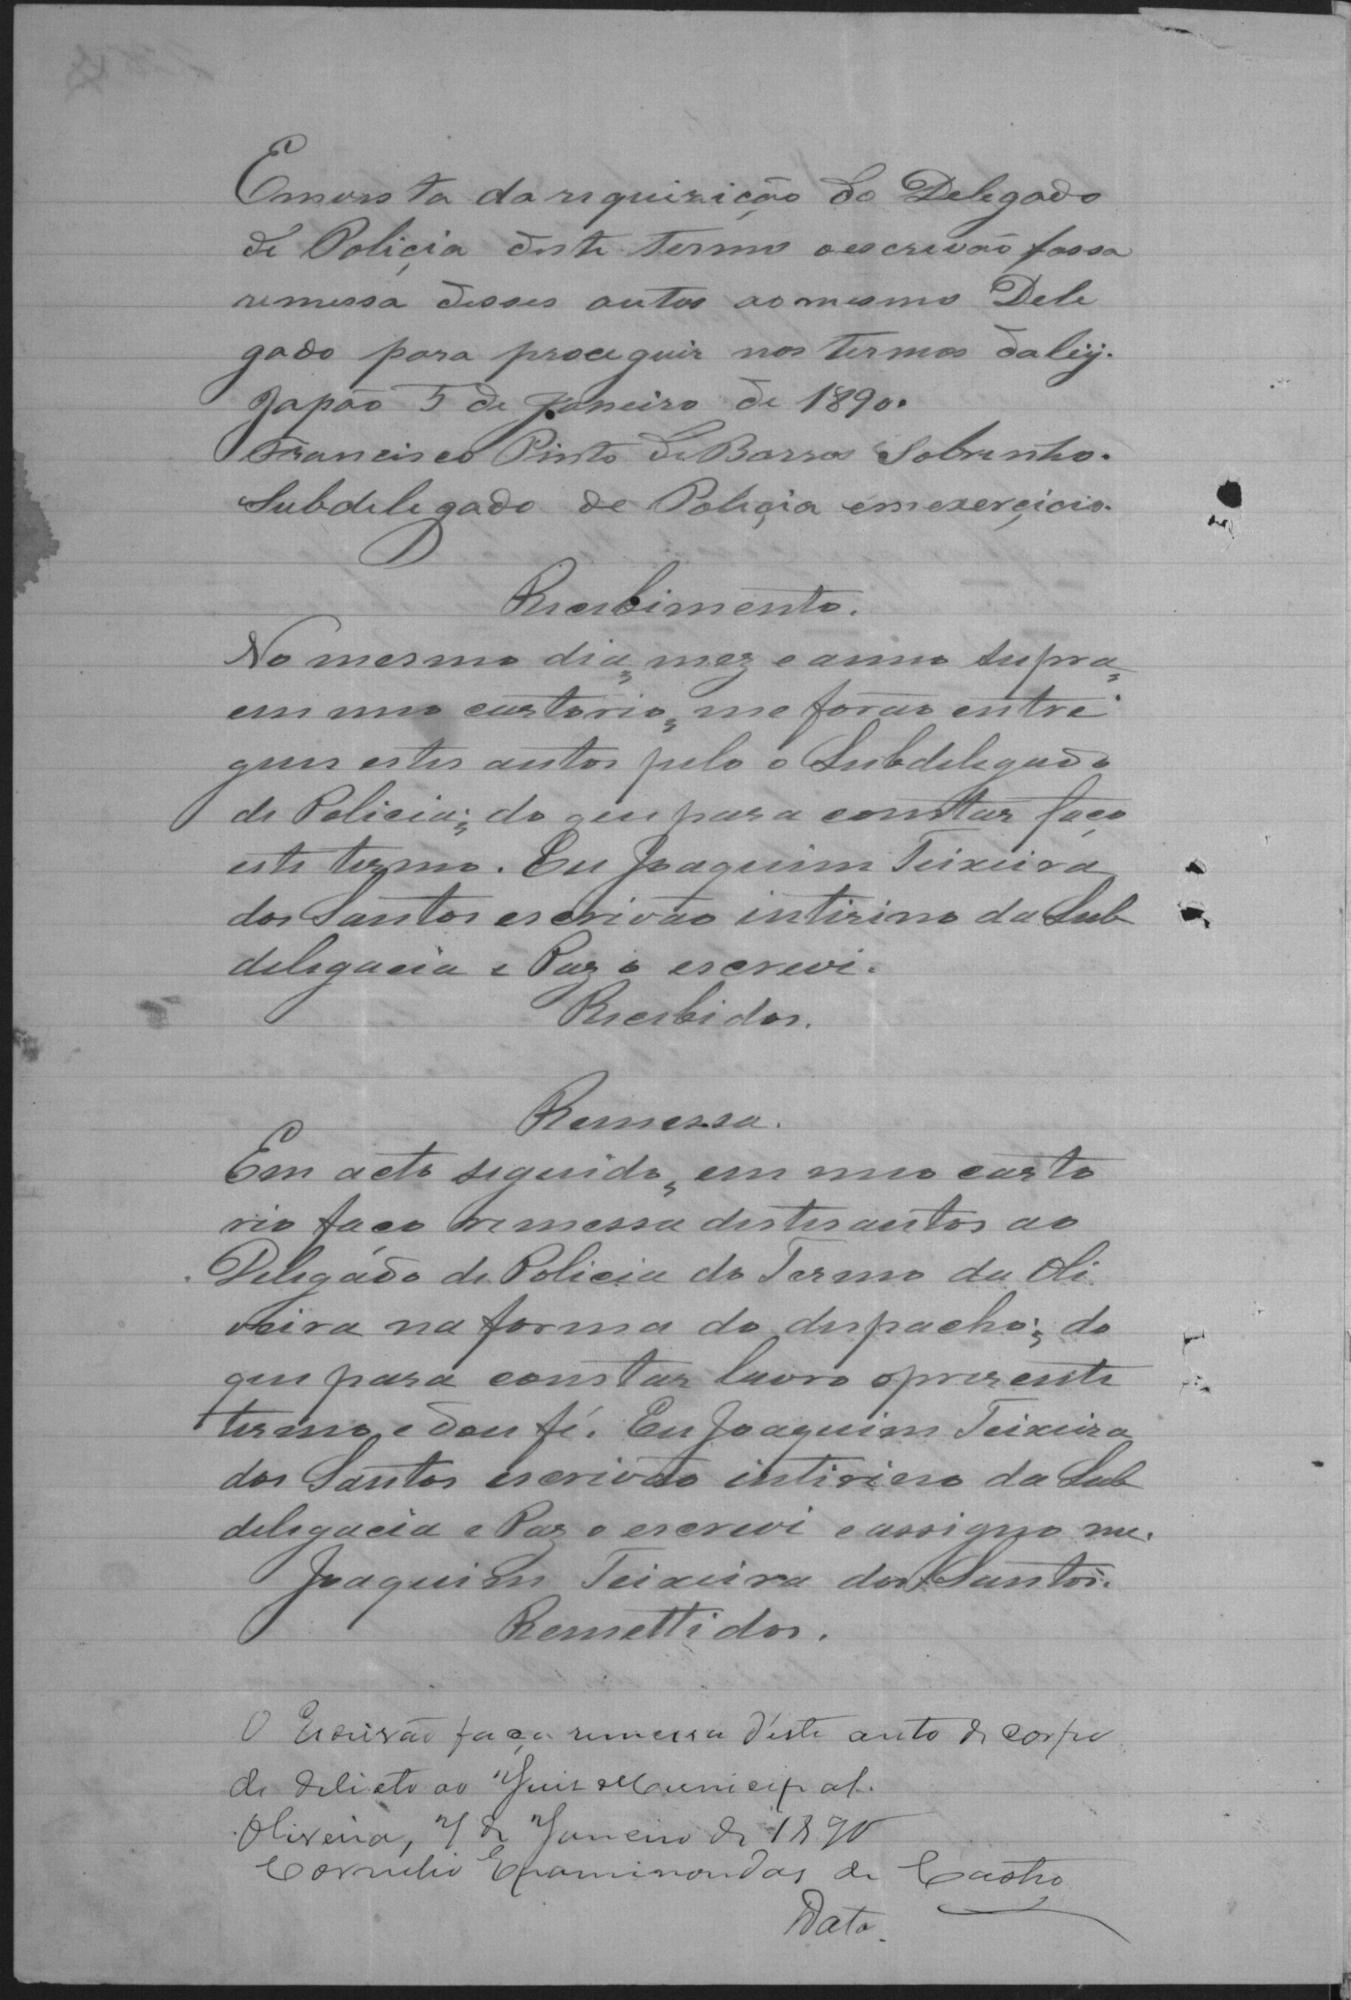 Em vista da requizição do Delegado
de Policia deste termo o escrivão fassa
remessa desses autos ao mesmo Dele
gado para proceguir nos termos da leij.
Japão 5 de Janeiro de 1890.
Francisco Pinto de Barros Sobrinho.
Subdelegado de Policia em exerçicio.
Recebimento.
No mesmo dia, mez e anno supra,
em meo cartorio, me forão entre
gues estes autos pelo o Subdelegado
de Policia; do que para constar faço
este termo. Eu Joaquim Teixeira
dos Santos escrivão intirino da Sub
delegacia e Paz o escrevi.
Recebidos.
Remessa.
Em acto seguido, em meo carto
rio faço remessa destes autos ao
Delegado de Policia do Termo da Oli
veira na forma do despacho; do
que para constar lavro o prezente
termo e dou fé. Eu Joaquim Teixeira
dos Santos escrivão intirino da Sub
delegacia e Paz o escrevi e assigno me.
Joaquim Teixeira dos Santos.
Remettidos.
O Escrivão faça remessa d'este auto de corpo
de delicto ao Juis Municipal.
Oliveira, 7 de Janeiro de 1890
Cornelio Epaminondas de Castro
Data.